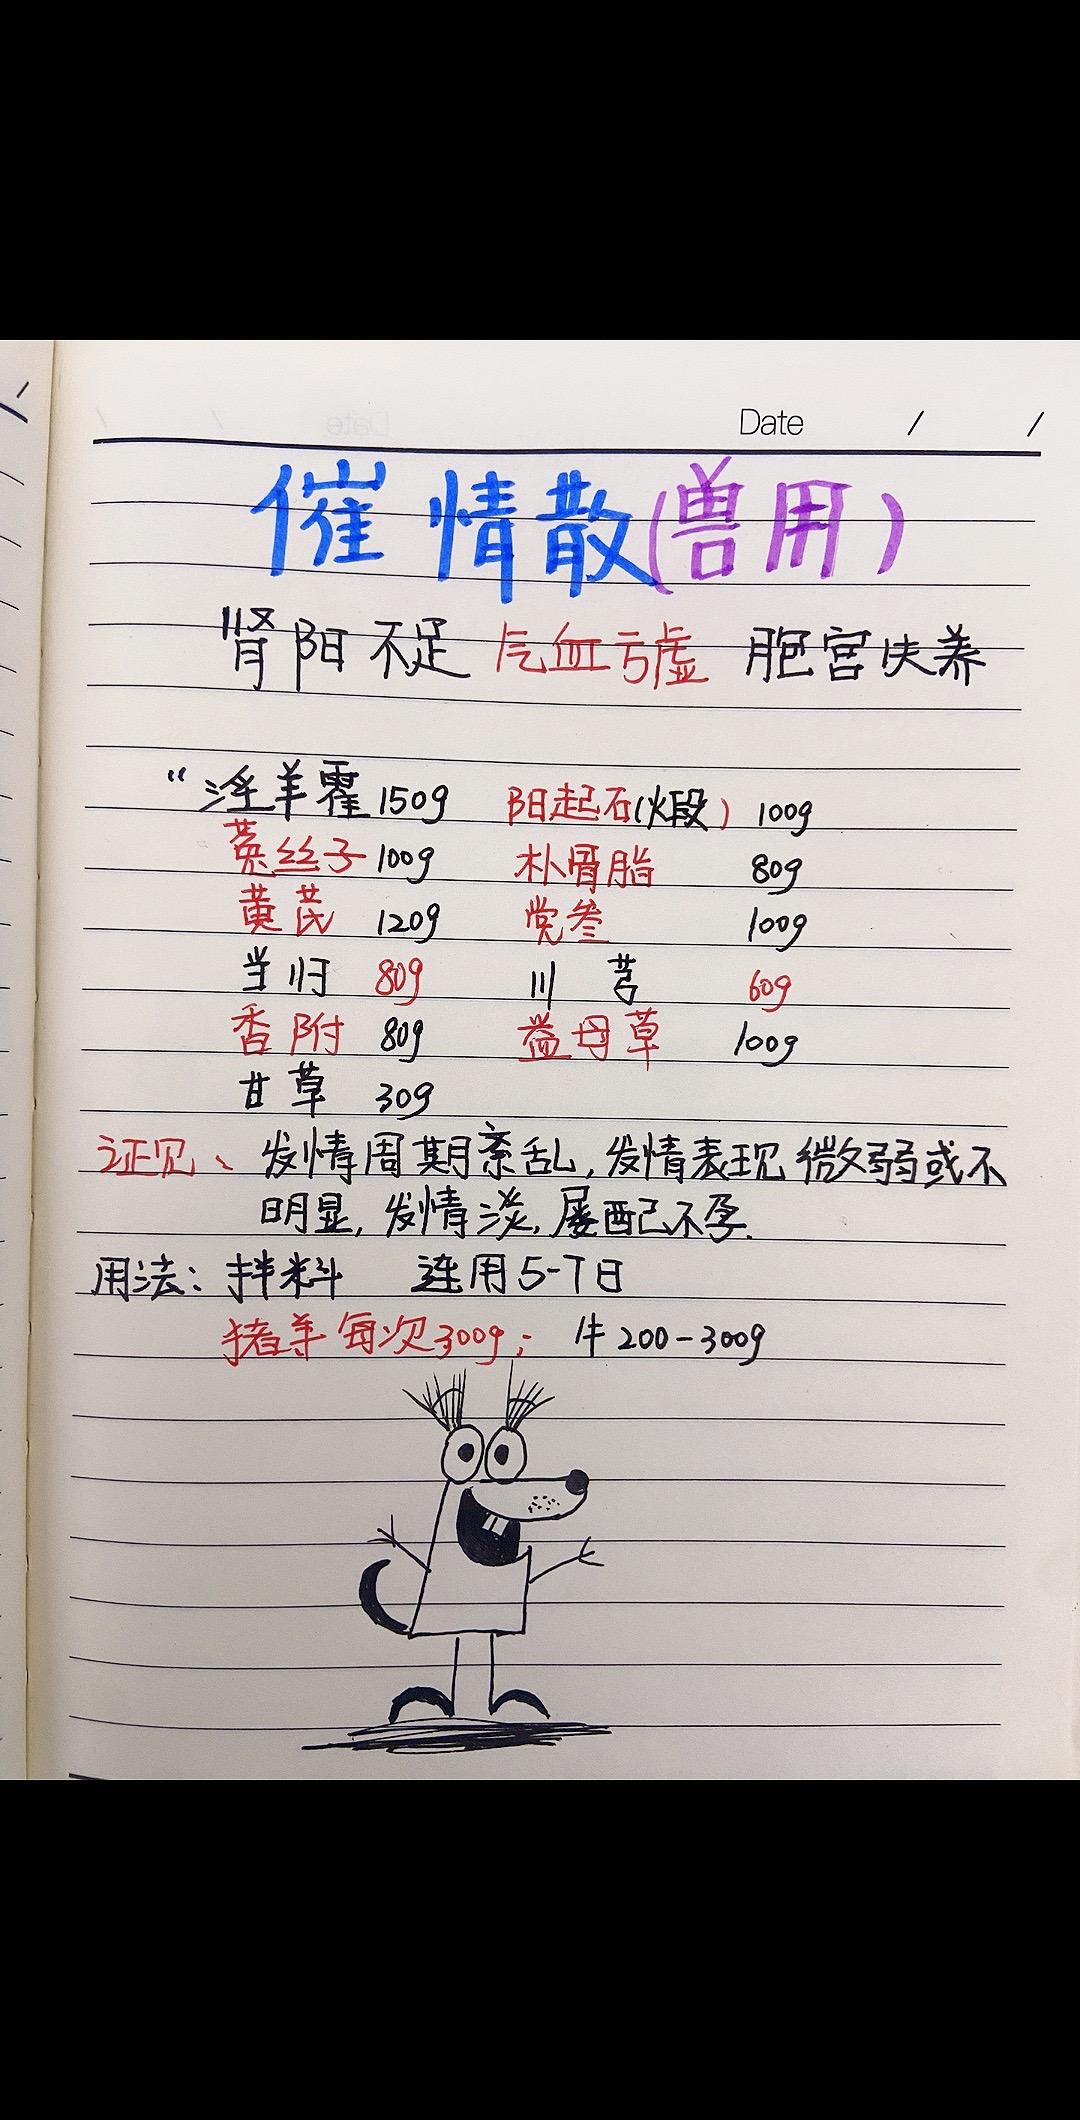 Date / /
催情散(兽用)
肾阳不足 气血亏虚 胞宫失养
“淫羊霍 150g 阳起石(煅) 100g
菟丝子 100g 补骨脂 80g
黄芪 120g 党参 100g
当归 80g 川芎 60g
香附 80g 益母草 100g
甘草 30g
证见、发情周期紊乱,发情表现微弱或不
明显,发情淡,屡配不孕.
用法:拌料 连用5-7日
猪羊每次300g; 牛200-300g